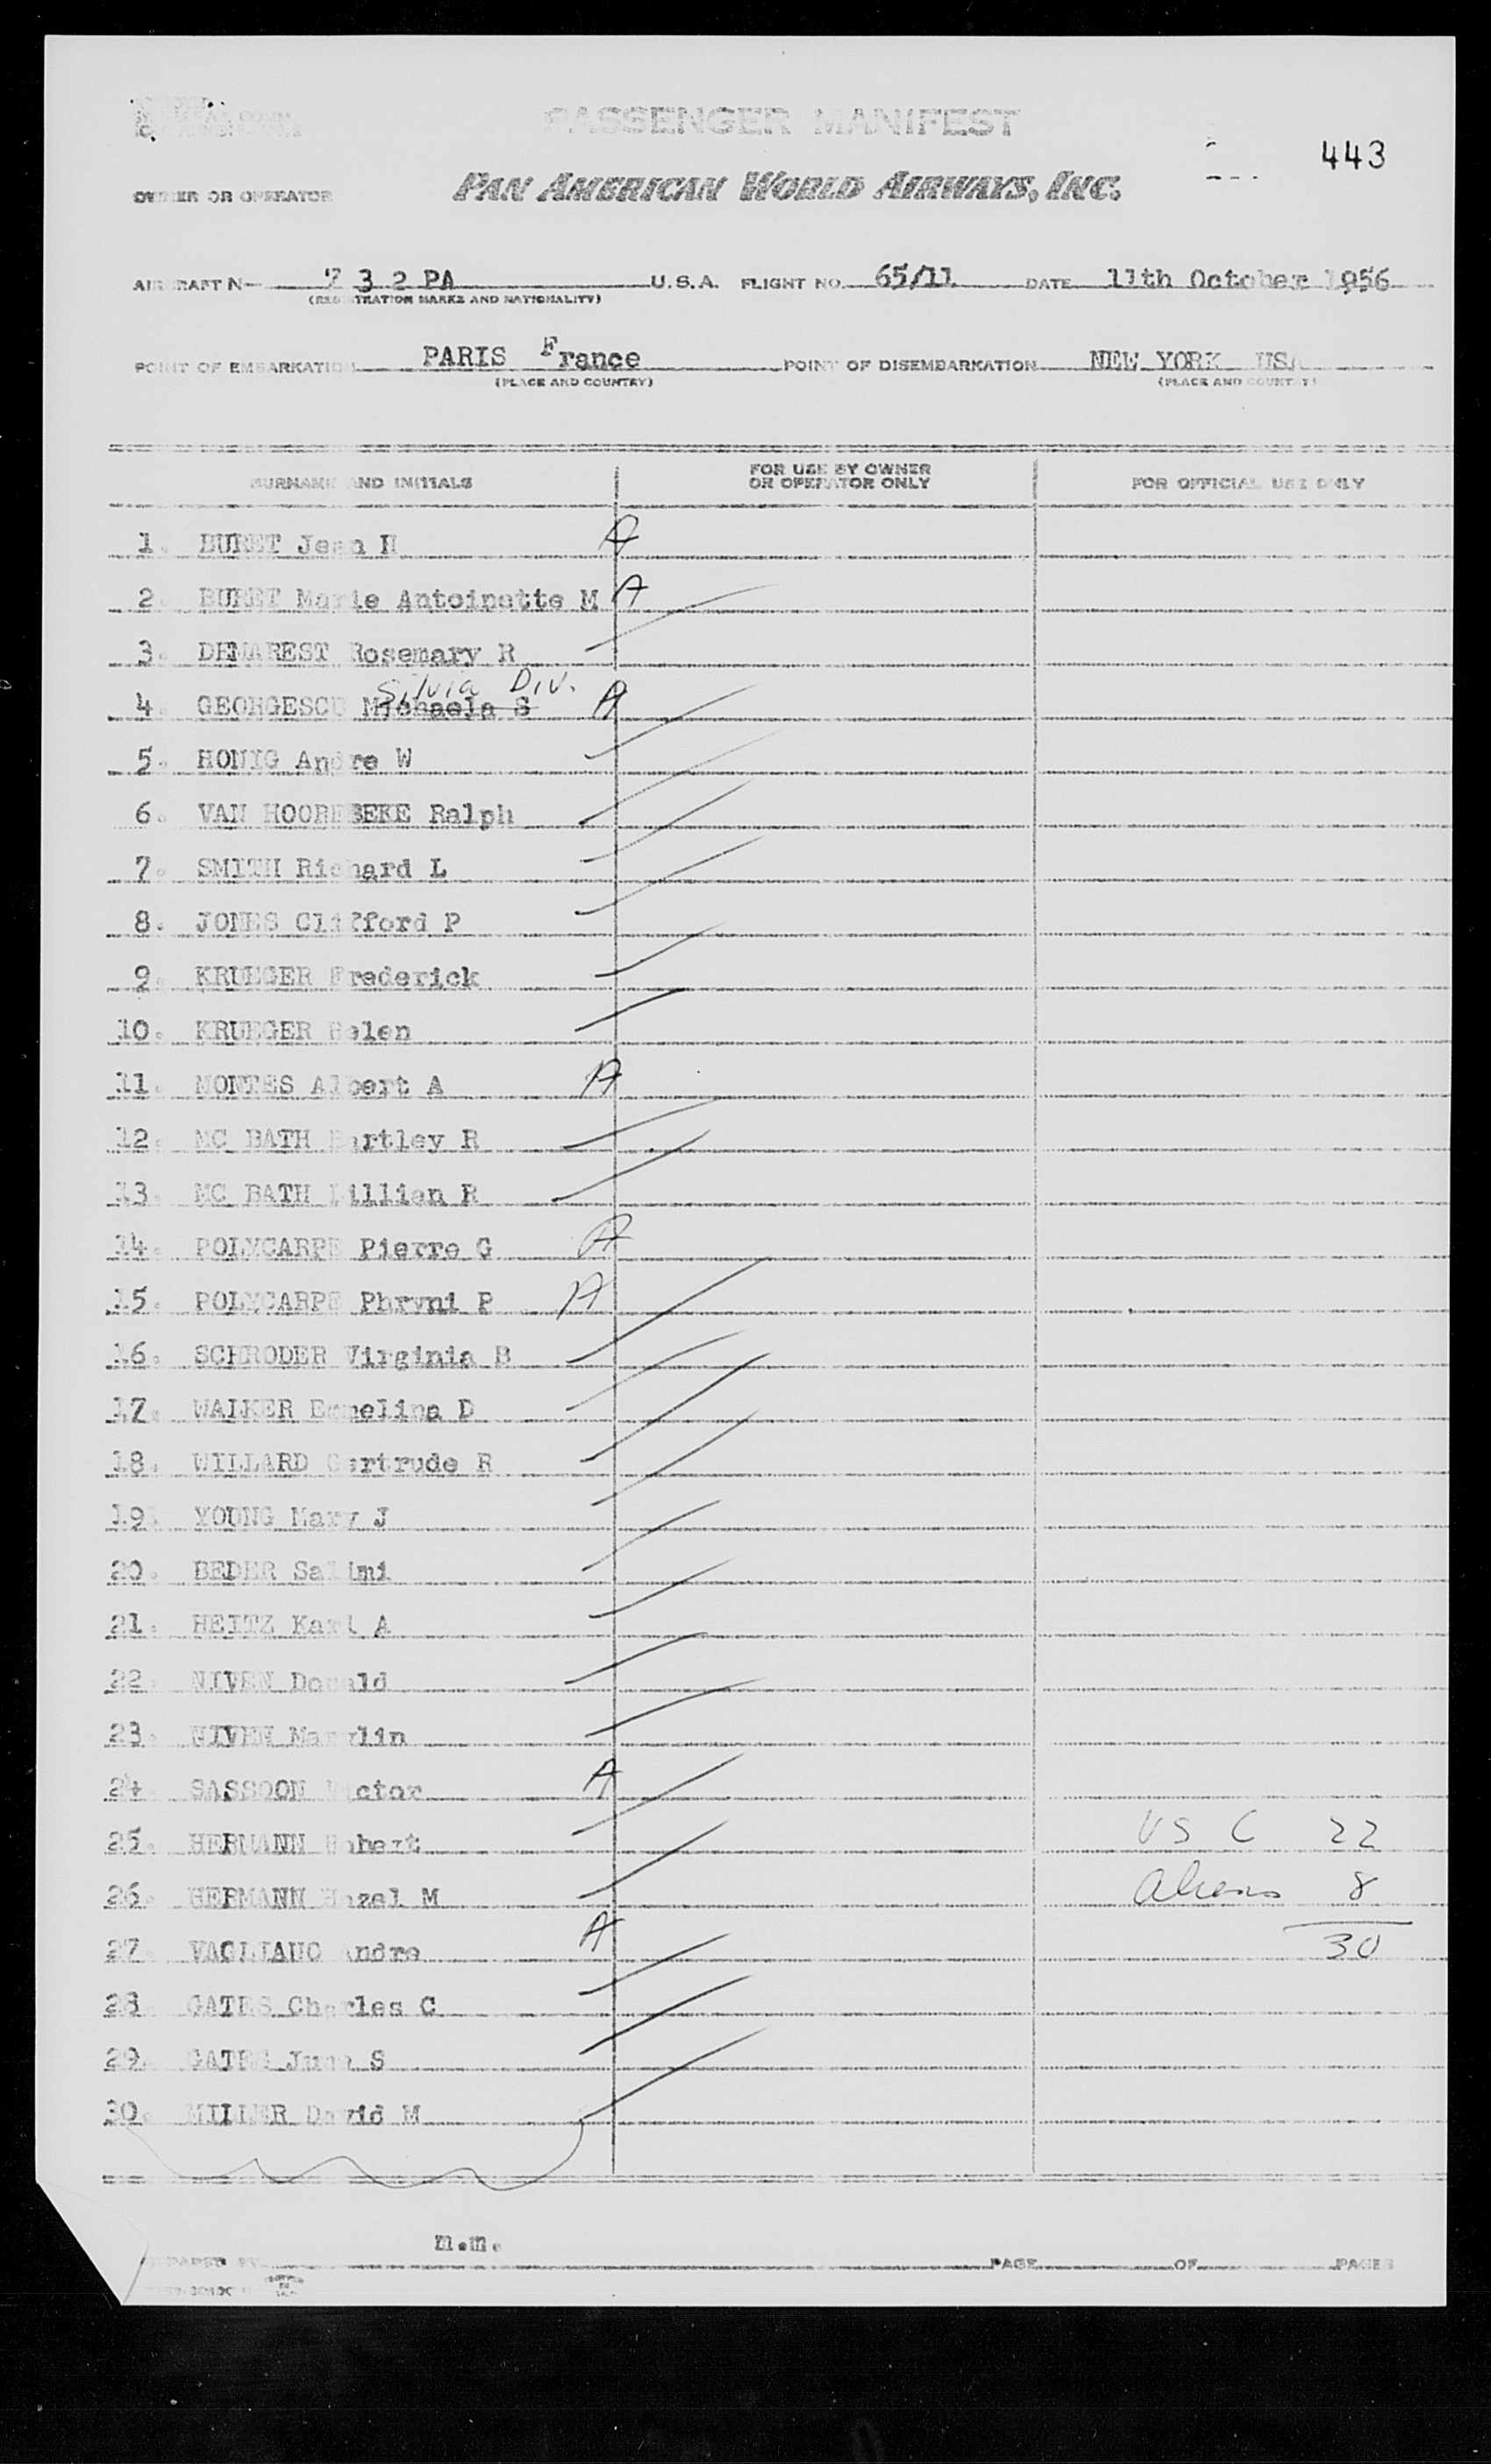 PASSENGER MANIFEST
443
OWNER OR OPERATOR PAN AMERICAN WORLD AIRWAYS, INC.
AIRCRAFT N 7 3 2 PA U.S.A. FLIGHT NO. 65/11 DATE 11th October 1956
(REGISTRATION MARKS AND NATIONALITY)
POINT OF EMBARKATION PARIS France POINT OF DISEMBARKATION NEW YORK USA
(PLACE AND COUNTRY) (PLACE AND COUNTRY)
SURNAME AND INITIALS FOR USE BY OWNER OR OPERATOR ONLY FOR OFFICIAL USE ONLY
1. BURET Jean H A
2. BURET Marie Antoinette M A
3. DEMAREST Rosemary R
Silvia Div.
4. GEORGESCU Michaela S A
5. HONIG Andre W
6. VAN HOOREBEKE Ralph
7. SMITH Richard L
8. JONES Clifford P
9. KRUEGER Frederick
10. KRUEGER Helen
11. MONTES Albert A A
12. MC BATH Bartley R
13. MC BATH Lillian R
14. POLYCARPE Pierre G A
15. POLYCARPE Phryni P A
16. SCHRODER Virginia B
17. WALKER D
18. WILLARD Gertrude R
19. YOUNG Mary J
20. BEDER Salimi
21. HEITZ Karl A
22. NIVEN Donald
23. NIVEN Marylin
24. SASSOON Victor A
25. HERMANN Robert US C 22
26. HERMANN Hazel M Aliens 8
27. VAGLIANO Andre A 30
28. GATES Charles C
29. GATES June S
30. MILLER David M
m.m.
PREPARED BY PAGE OF PAGES